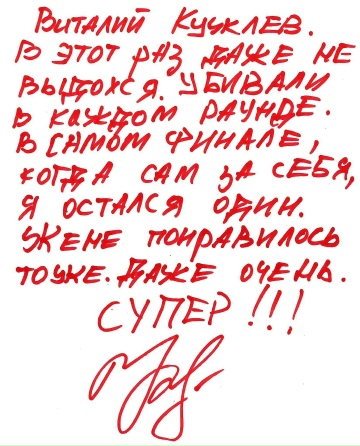 Виталий Кучклев.
В этот раз даже не
выдохся. Убивали
в каждом раунде.
В самом финале,
когда сам за себя,
я остался один.
Жене понравилось
тоже. Даже очень.
СУПЕР!!!